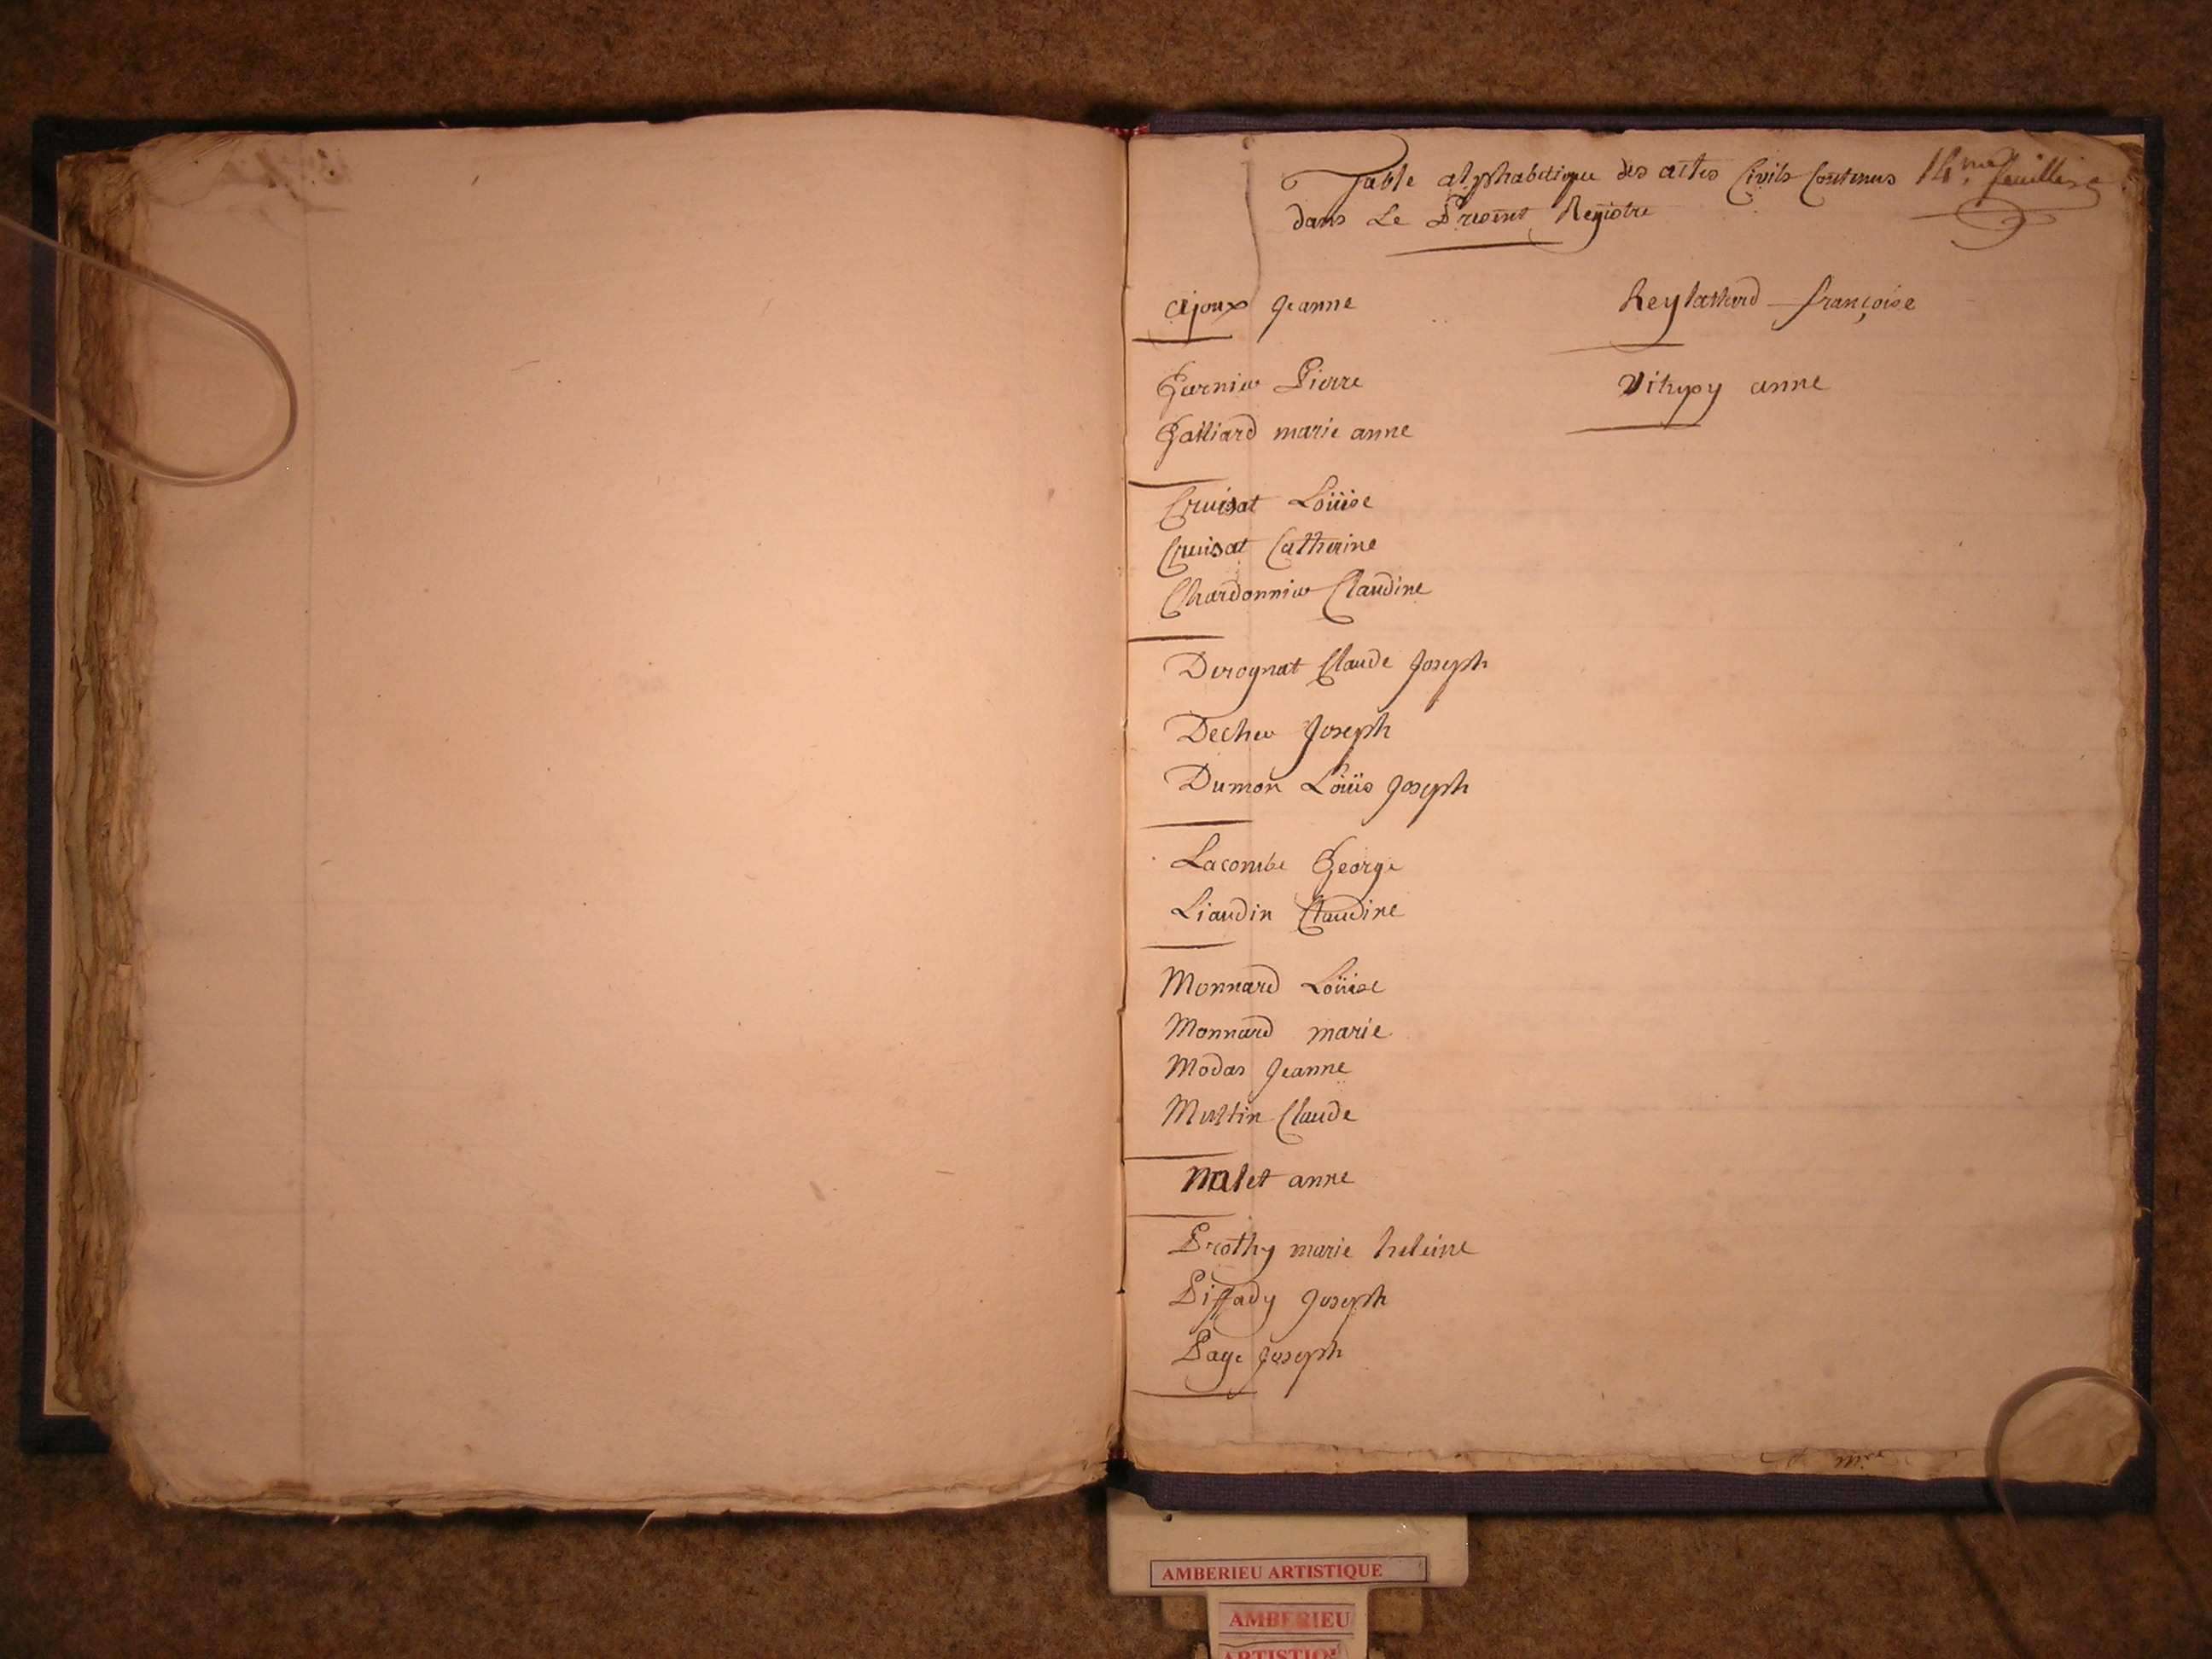 Table alphabetique des actes Civils Contenus
dans Le Present Registre
14.me feuillet
ajoux Jeanne
Garnier Pierre
Galliard marie anne
Cruisat Loüise
Cruisat Catherine
Chardonnier Claudine
Derognat Claude Joseph
Decher Joseph
Dumon Loüis Joseph
Lacombe George
Liaudin Claudine
Monnard Loüise
Monnard marie
Modas Jeanne
Mertin Claude
Malet anne
Prothy marie heleine
Piffady Joseph
Page Joseph
Reylathard françoise
Vitupy anne
AMBERIEU ARTISTIQUE
AMBERIEU